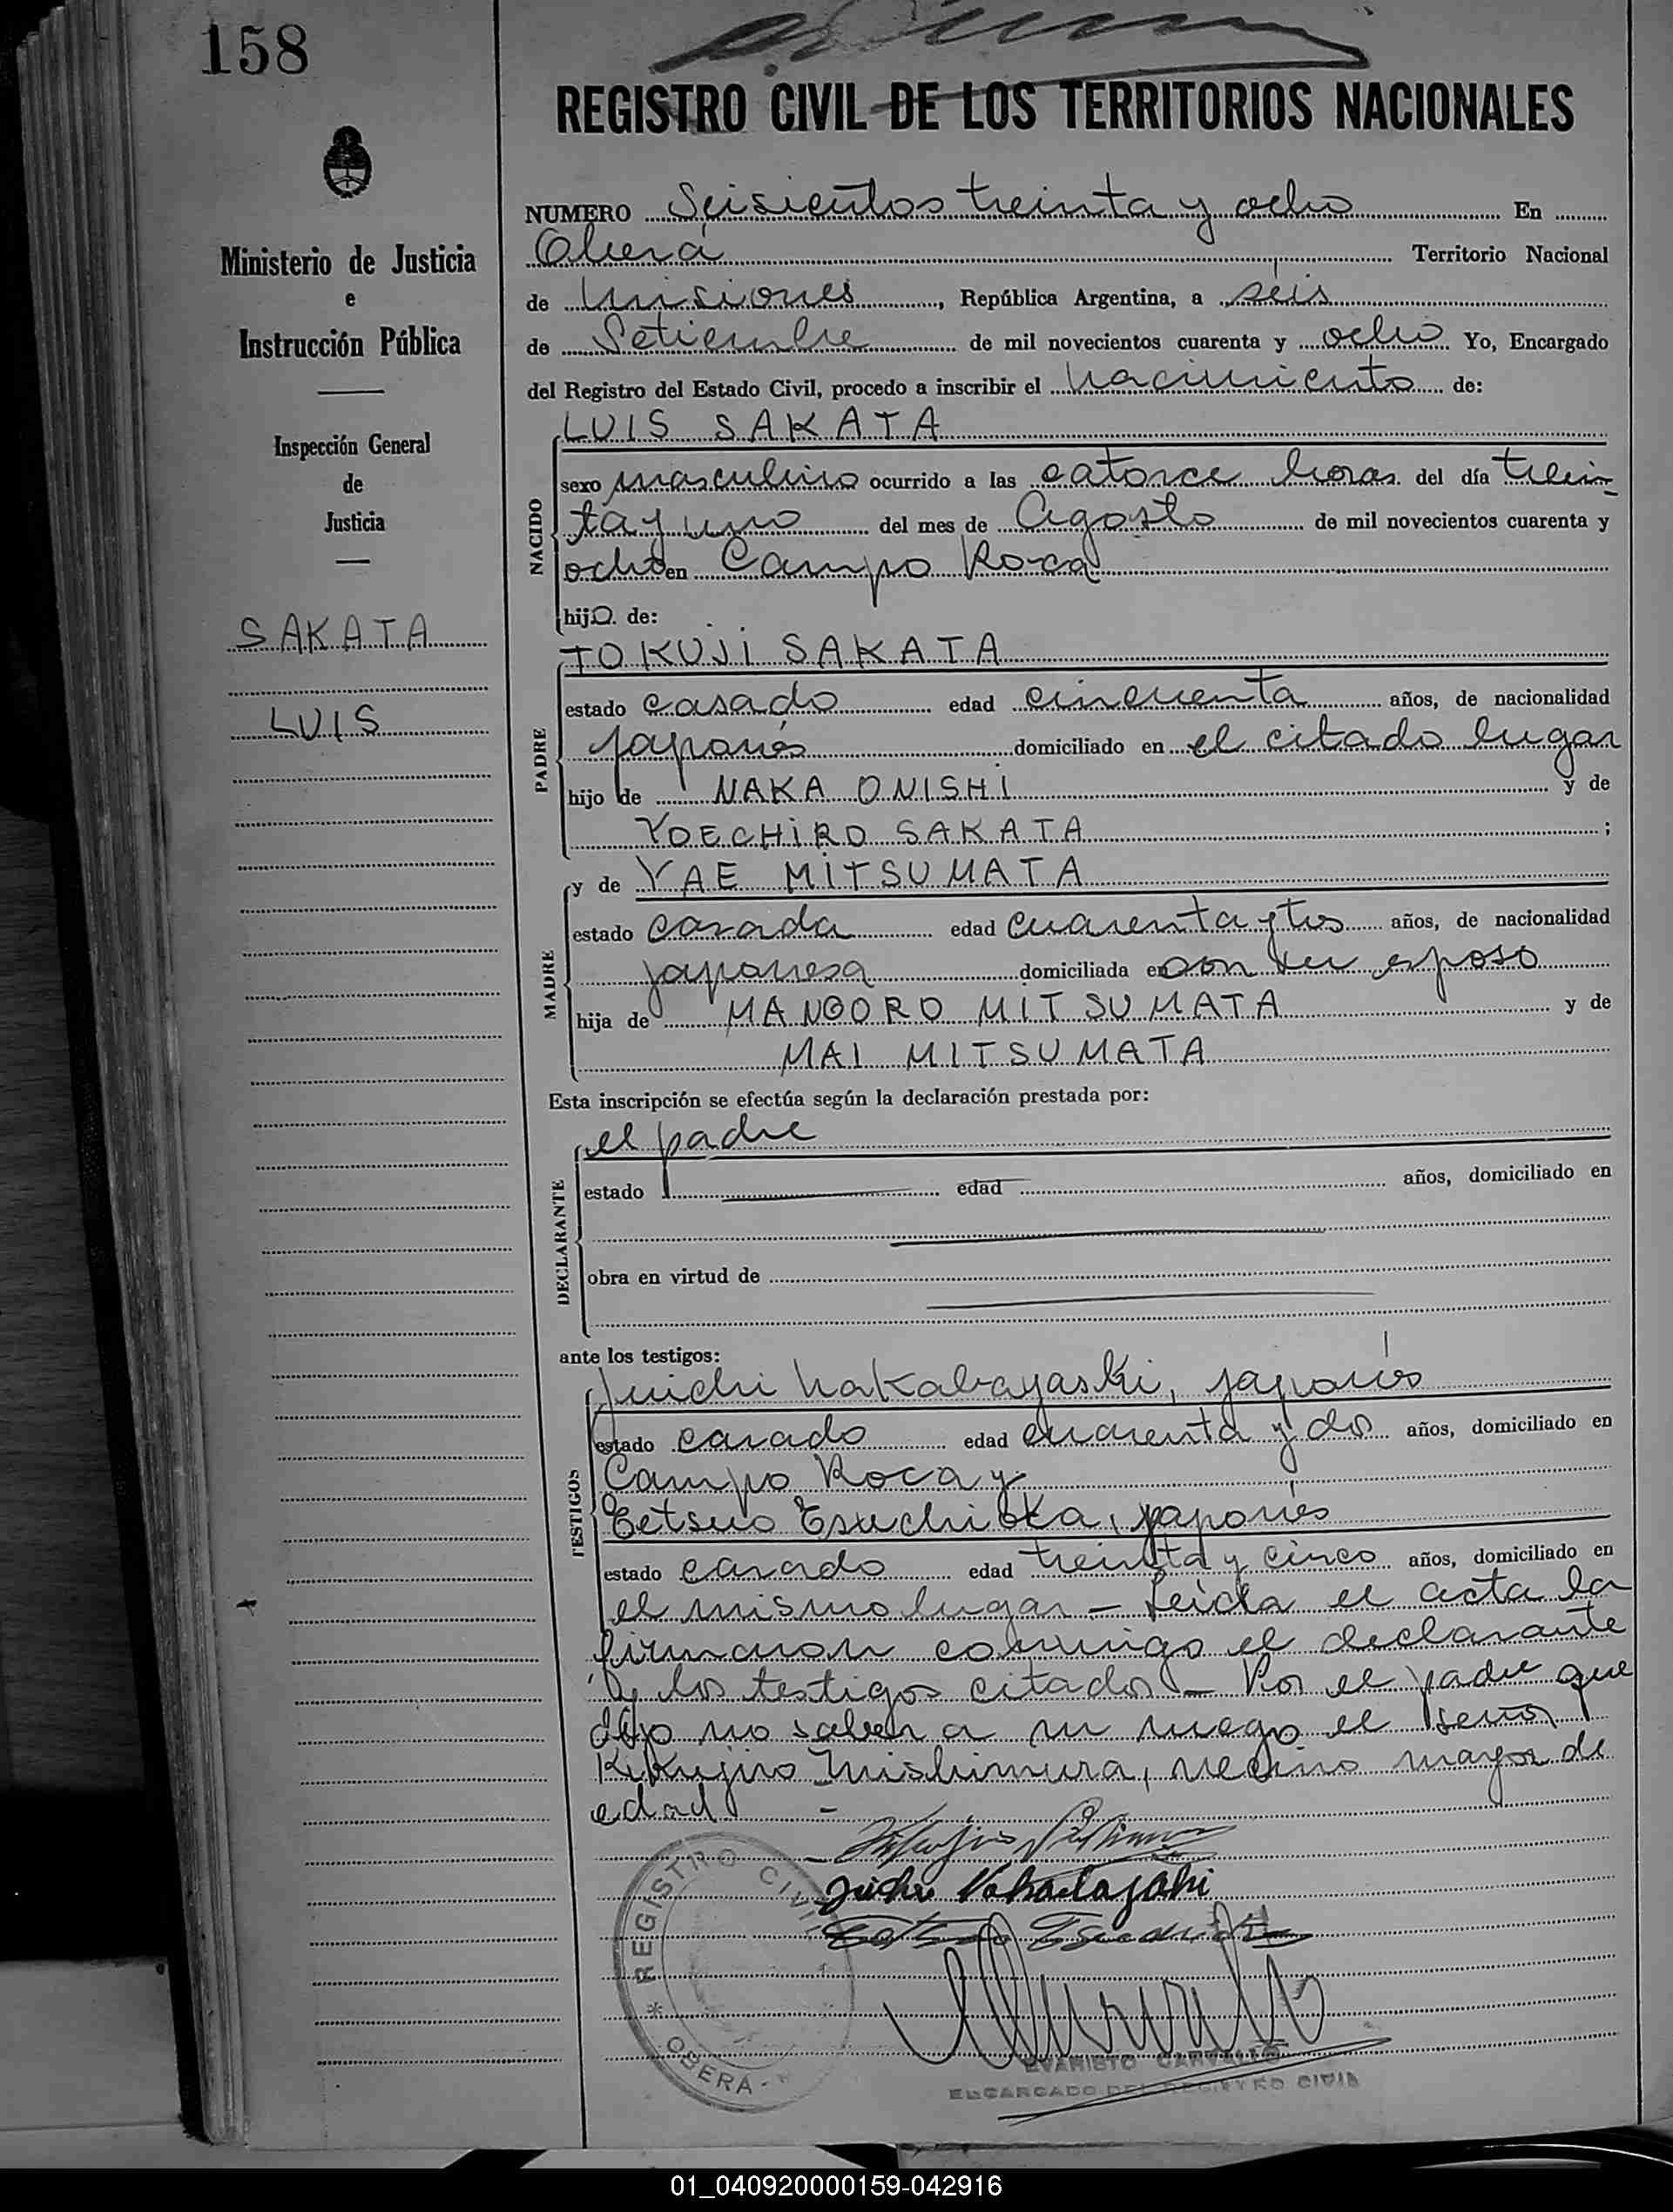 158
REGISTRO CIVIL DE LOS TERRITORIOS NACIONALES
Ministerio de Justicia
e
Instrucción Pública
Inspección General
de
Justicia
SAKATA
LUIS
NUMERO Seisientos treinta y ocho En
Oberá Territorio Nacional
de Misiones, República Argentina, a seis
de Setiembre de mil novecientos cuarenta y ocho Yo, Encargado
del Registro del Estado Civil, procedo a inscribir el nacimiento de:
NACIDO
LUIS SAKATA
sexo masculino ocurrido a las catorce horas del día trein-
tayuno del mes de Agosto de mil novecientos cuarenta y
ocho en Campo Roca
hijo de:
PADRE
TOKUJI SAKATA
estado casado edad cincuenta años, de nacionalidad
japonés domiciliado en el citado lugar
hijo de NAKA ONISHI y de
YOECHIRO SAKATA ;
MADRE
y de YAE MITSUMATA
estado casada edad cuarenta y tres años, de nacionalidad
japonesa domiciliada en con su esposo
hija de MANGORO MITSUMATA y de
MAI MITSUMATA
Esta inscripción se efectúa según la declaración prestada por:
DECLARANTE
el padre
estado edad años, domiciliado en
obra en virtud de
ante los testigos:
TESTIGOS
Juichi Nakabayashi, japonés
estado casado edad cuarenta y dos años, domiciliado en
Campo Roca y
Tetsuo Tsuchioka, japonés
estado casado edad treinta y cinco años, domiciliado en
el mismo lugar - Leída el acta la
firmaron conmigo el declarante
y los testigos citados - Por el padre que
dijo no saber a su ruego el señor
Kikujiro Mishimura, vecino mayor de
edad -
Juichi Nakabayashi
REGISTRO CIVIL
* OBERÁ -
EVARISTO CARVALLO
ENCARGADO DEL REGISTRO CIVIL
01_040920000159-042916